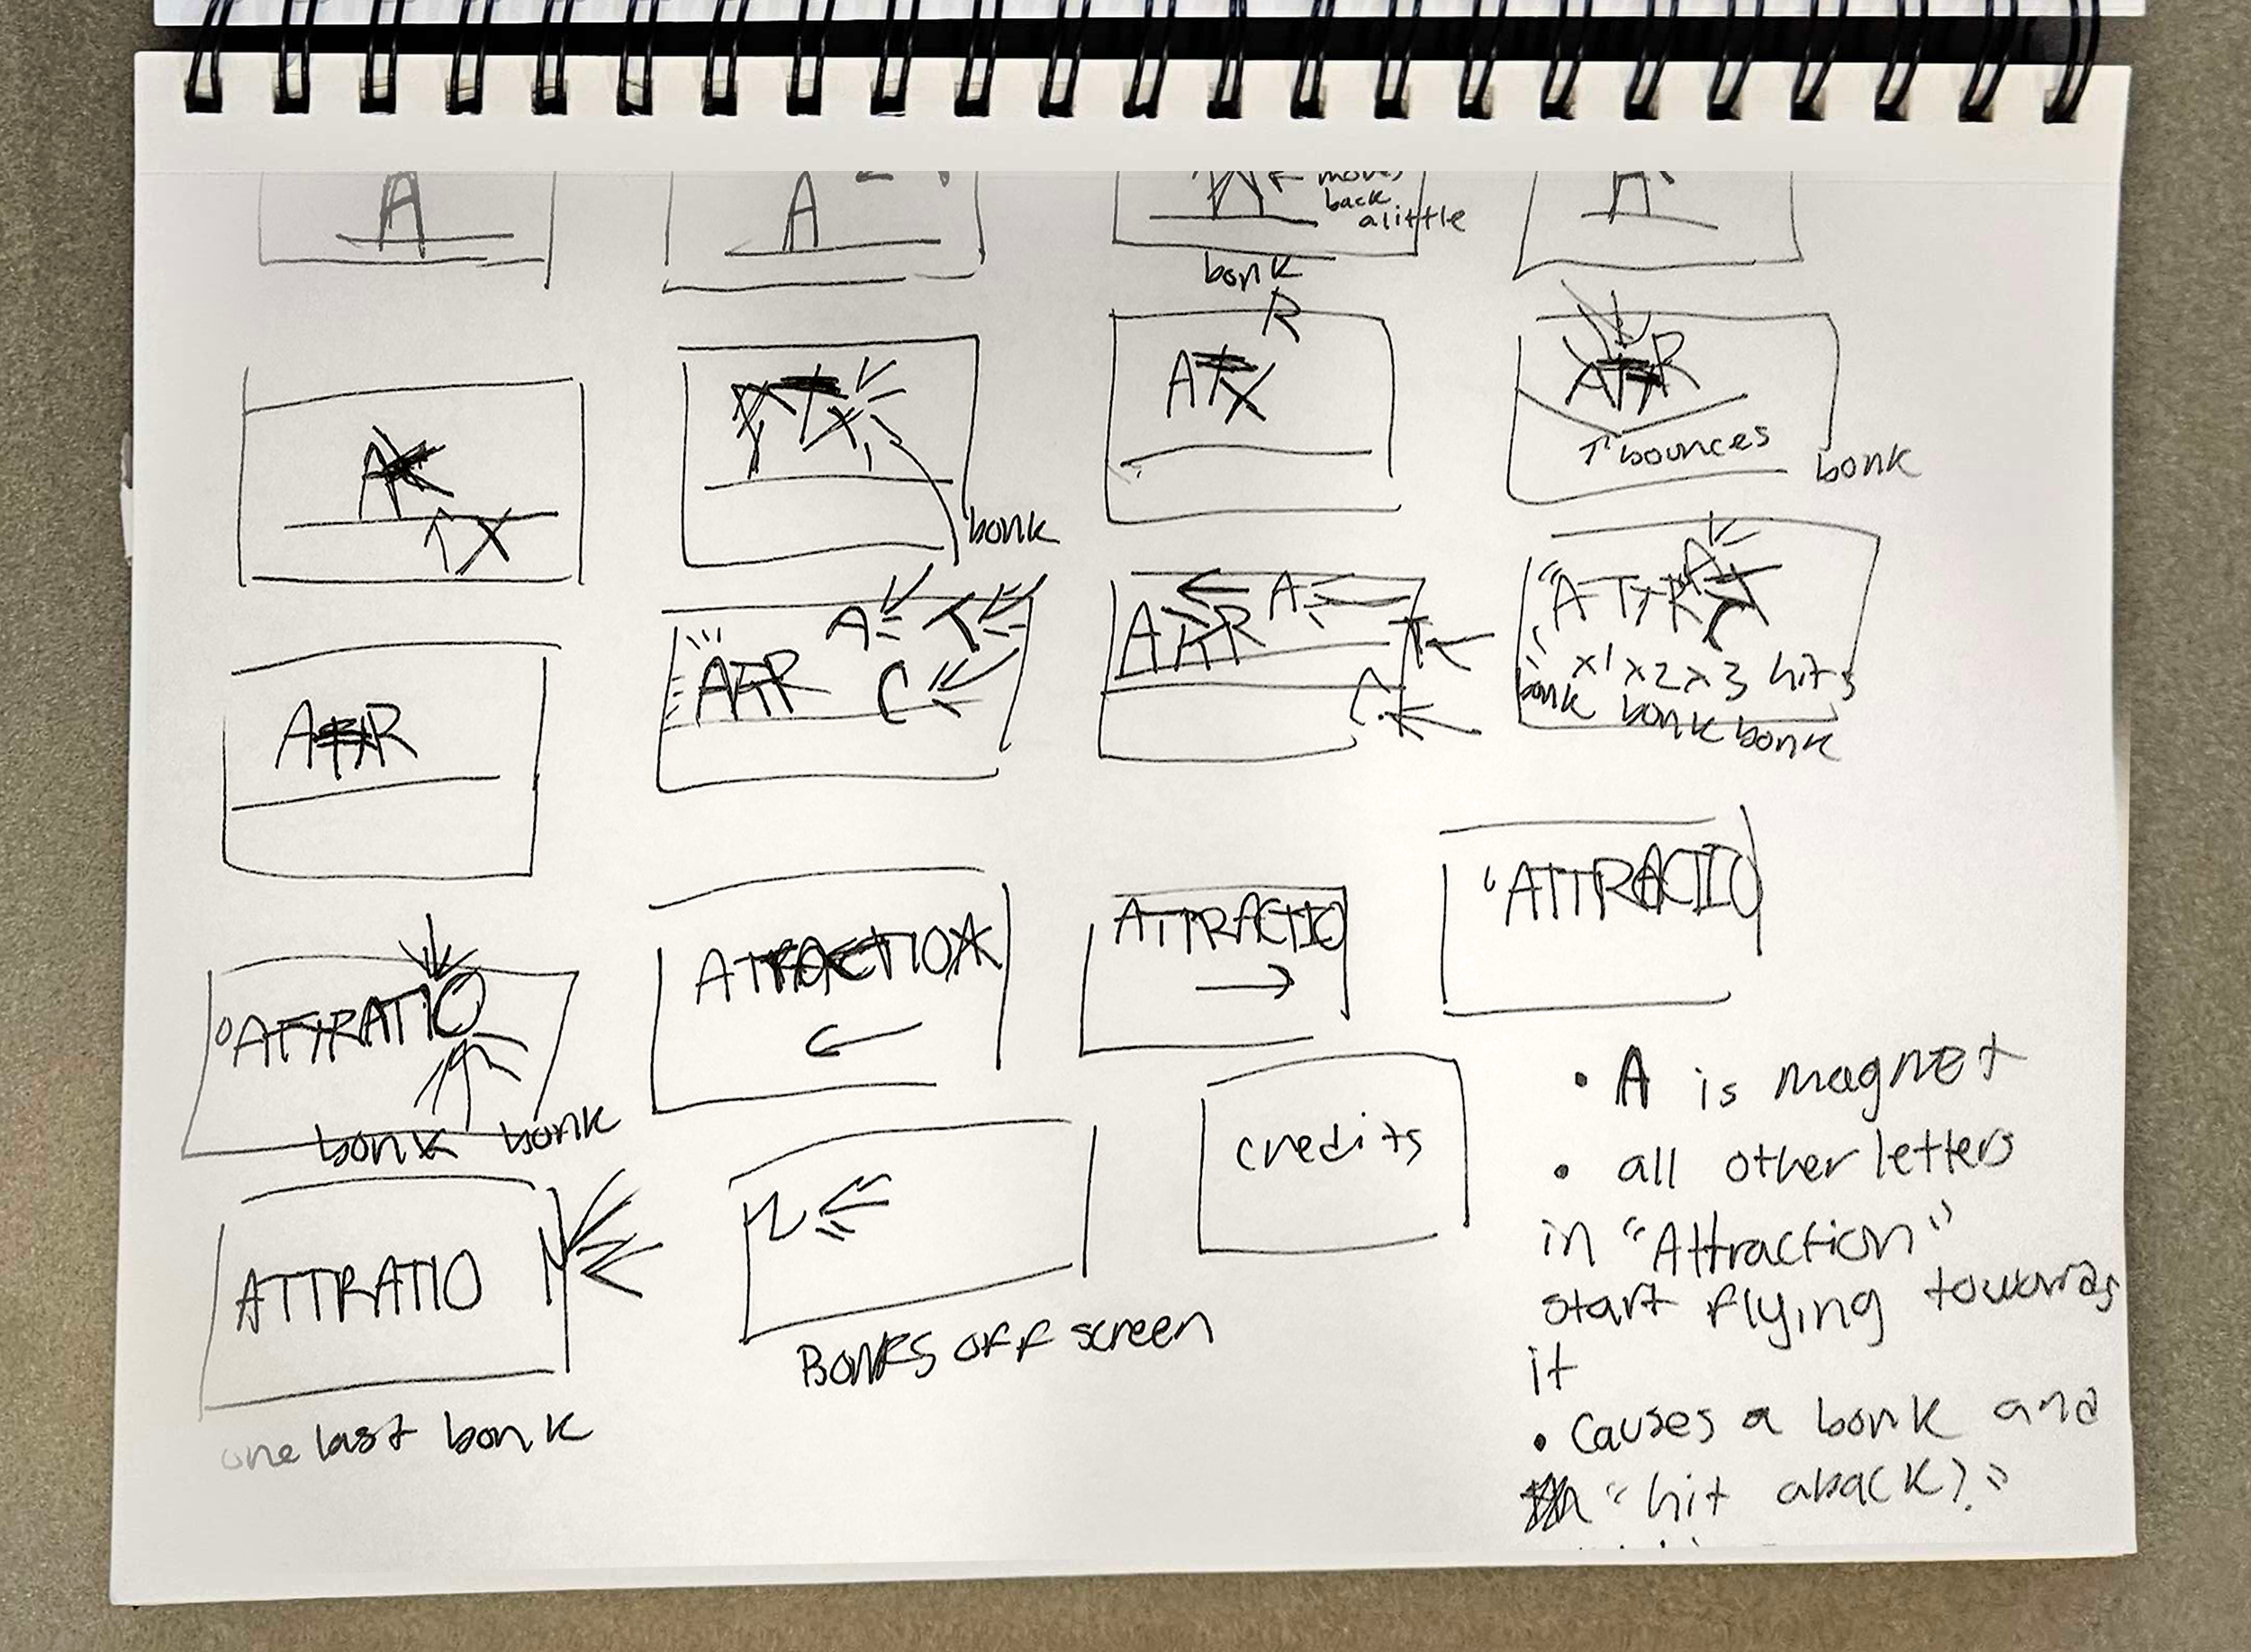 A
A
moves
back
a little
A
bonk
R
ATX
ATR
↑ bounces
bonk
A
↑ X
bonk
ATR
A T
C
ATR
A
T
C
ATTR A
x1 x2 x3 hits
bonk bonk bonk
ATTRATIO
bonk bonk
ATTRACTIO
ATTRACTIO
ATTRACTIO
ATTRATIO N
one last bonk
N
BONKS OFF screen
credits
• A is magnet
• all other letters
in "Attraction"
start flying towards
it
• Causes a bonk and
"hit aback)."